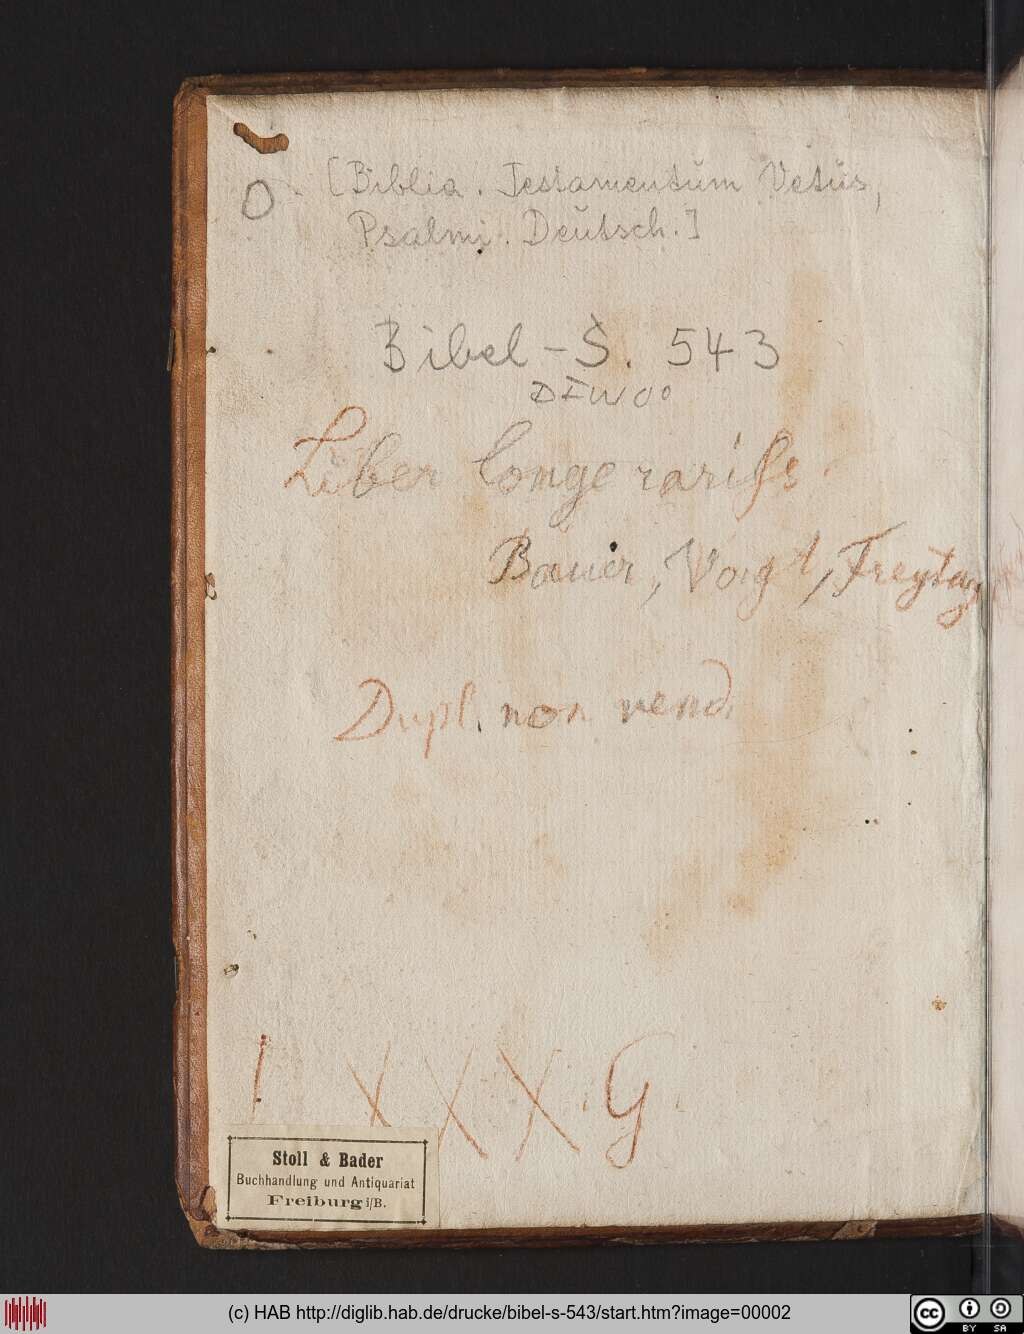 O. [Biblia. Testamentŭm Vetŭs,
Psalmi. Deŭtsch.]
Bibel-S. 543
Liber longe rariſs.
Bauer, Vogt, Freytag
Dupl. non vend.
I XXX. G.
Stoll & Bader
Buchhandlung und Antiquariat
Freiburg i/B.
(c) HAB http://diglib.hab.de/drucke/bibel-s-543/start.htm?image=00002
cc BY SA